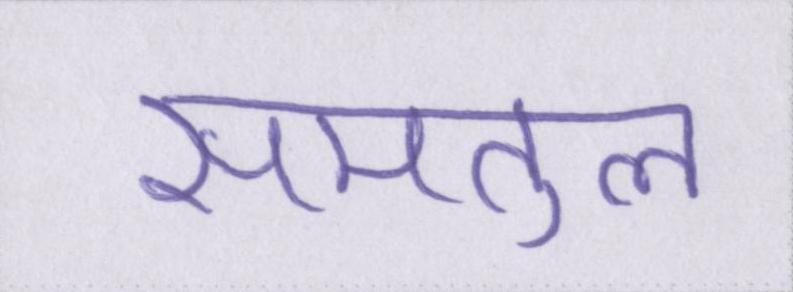 समतुल